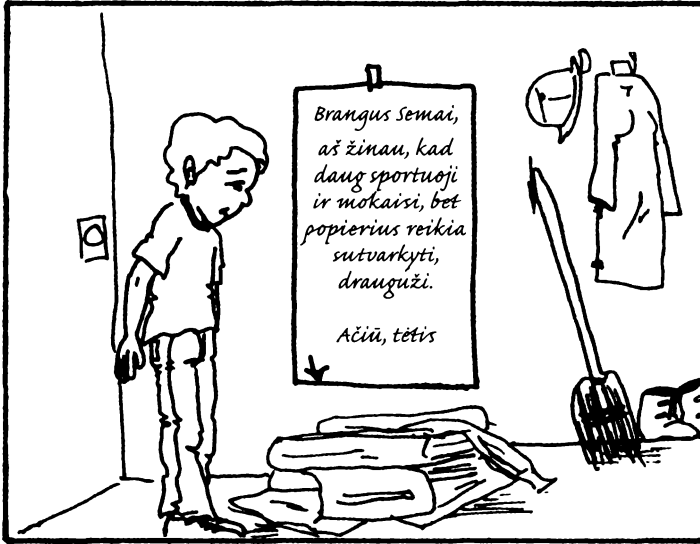 Brangus Semai,
aš žinau, kad
daug sportuoji
ir mokaisi, bet
popierius reikia
sutvarkyti,
drauguži.
Ačiū, tėtis